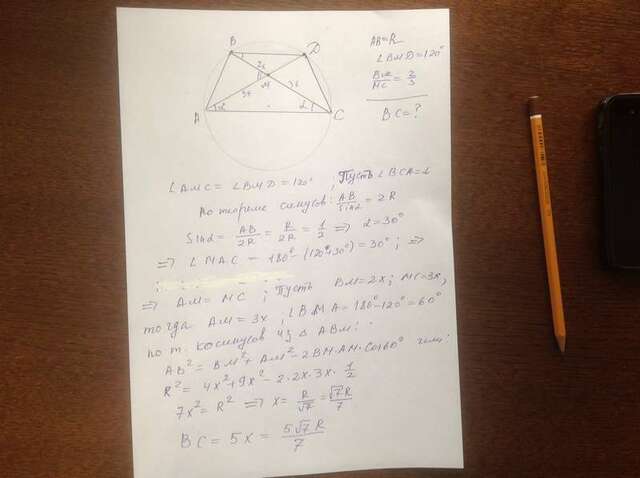 B
D
2x
M
3x
3x
A
α
α
C
AB=R
∠BMD=120°
BM/MC=2/3
BC=?
∠AMC=∠BMD=120°; Пусть ∠BCA=α
По теореме синусов: AB/sinα=2R
Sinα=AB/2R=R/2R=1/2 ⇒ α=30°
⇒ ∠MAC=180°-(120°+30°)=30°; ⇒
⇒ AM=MC; Пусть BM=2x; MC=3x,
тогда AM=3x; ∠BMA=180°-120°=60°
по т. косинусов из △ABM:
AB²=BM²+AM²-2BM·AM·Cos60° или:
R²=4x²+9x²-2·2x·3x·1/2
7x²=R² ⇒ x=R/√7=√7R/7
BC=5x=5√7R/7